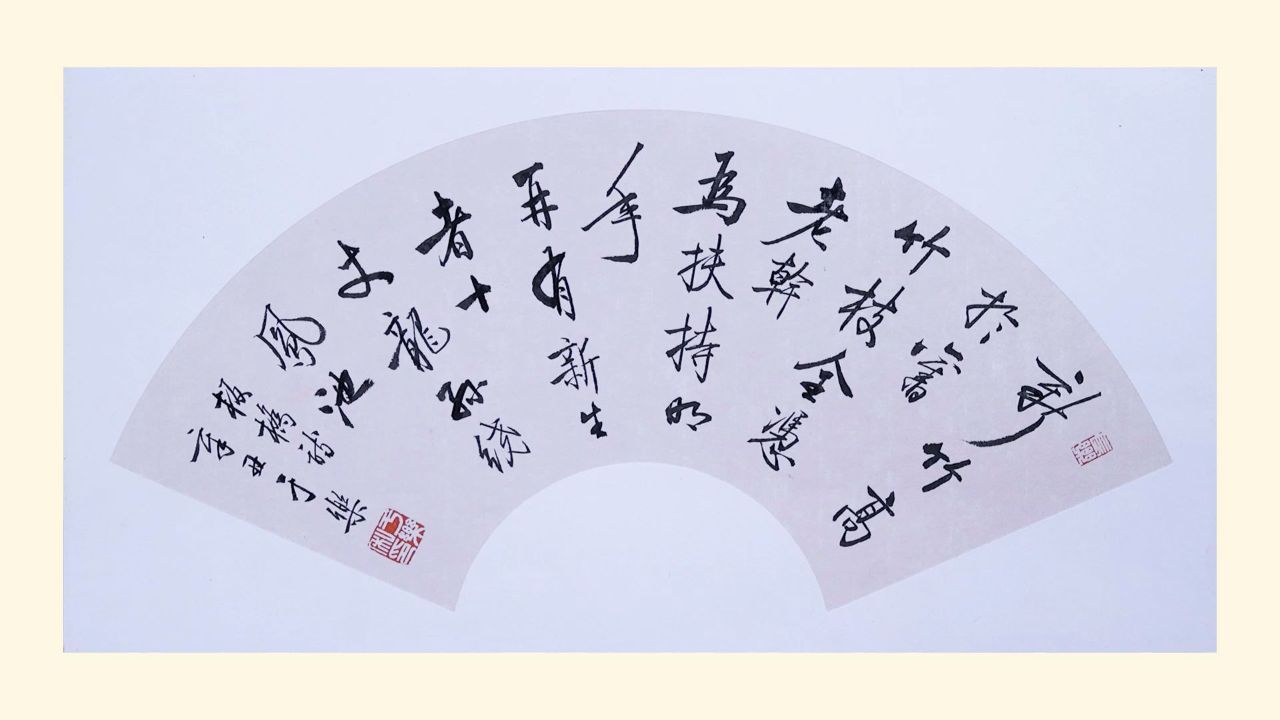 新竹高
於舊
竹枝全憑
老幹
為扶持明
年
再有新生
者十
丈龍孫繞
鳳池
板橋詩
辛丑